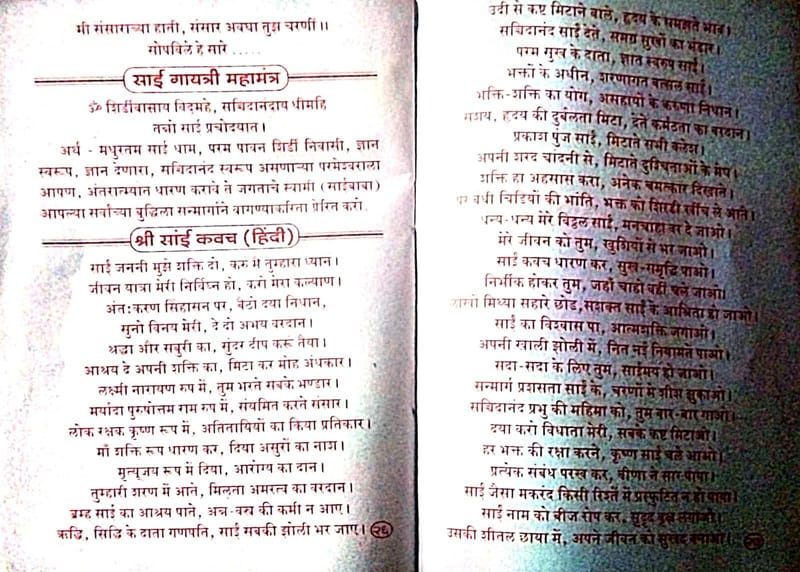 मी संसाराच्या हाती, संसार अवघा तुझ चरणीं॥
सोपविले हे सारे .....
साई गायत्री महामंत्र
ॐ शिर्डीवासाय विद्महे, सचिदानंदाय धीमहि
तन्नो साई प्रचोदयात।
अर्थ - मधुरतम साई धाम, परम पावन शिर्डी निवासी, ज्ञान
स्वरूप, ज्ञान देणारा, सचिदानंद स्वरूप असणाऱ्या परमेश्वराला
आपण, अंतरात्म्यात धारण करावे ते जगताचे स्वामी (साईबाबा)
आपल्या सर्वांच्या बुद्धिला सन्मार्गाने वागण्याकरिता प्रेरित करो.
श्री सांई कवच (हिंदी)
साई जननी मुझे शक्ति दो, करु मै तुम्हारा ध्यान।
जीवन यात्रा मेरी निर्विघ्न हो, करो मेरा कल्याण।
अंतःकरण सिंहासन पर, बैठो दया निधान,
सुनो विनय मेरी, दे दो अभय वरदान।
श्रद्धा और सबुरी का, सुंदर दीप करू तैया।
आश्रय दे अपनी शक्ति का, मिटा कर मोह अंधकार।
लक्ष्मी नारायण रुप में, तुम भरते सबके भण्डार।
मर्यादा पुरुषोत्तम राम रुप में, संयमित करते संसार।
लोक रक्षक कृष्ण रूप में, अतितायियों का किया प्रतिकार।
माँ शक्ति रूप धारण कर, दिया असुरों का नाश।
मृत्यूंजय रूप में दिया, आरोग्य का दान।
तुम्हारी शरण में आते, मिलता अमरत्व का वरदान।
ब्रम्ह साई का आश्रय पाने, अन्न-वस्त्र की कमी न आए।
ऋद्धि, सिद्धि के दाता गणपति, साईं सबकी झोली भर जाए। २६
उदी से कष्ट मिटाने वाले, हृदय के समझते भाव।
सचिदानंद साईं देते, समग्र सुखों का भंडार।
परम गुख के दाता, ज्ञात स्वरुप साईं।
भक्तों के अधीन, शरणागत वत्सल साईं।
भक्ति-शक्ति का योग, असहायों के करुणा निधान।
संशय, हृदय की दुर्बलता मिटा, देते कर्मठता का वरदान।
प्रकाश पुंज साईं, मिटाते सभी क्लेश।
अपनी शरद चादनी से, मिटाते दुश्चिंताओं के मेघ।
शक्ति हा अहसास करा, अनेक चमत्कार दिखाते।
पर बधी चिडियों की भांति, भक्त को शिरडी खींच ले आते।
धन्य-धन्य मेरे विट्ठल साईं, मनचाहा वर दे जाओ।
मेरे जीवन को तुम, खुशियों से भर जाओ।
साईं कवच धारण कर, सुख-समृद्धि पाओ।
निर्भीक होकर तुम, जहाँ चाहो वहीं चले जाओ।
लाखो मिथ्या सहारे छोड, सशक्त साईं के आश्रित हो जाओ।
साईं का विश्वास पा, आत्मशक्ति जगाओ।
अपनी खाली झोली में, नित नई नियामत पाओ।
सदा-सदा के लिए तुम, साईमय हो जाओ।
सन्मार्ग प्रशसता साईं के, चरणों में शीश झुकाओ।
सचिदानंद प्रभु की महिमा को, तुम बार-बार गाओ।
दया करो विधाता मेरी, सबके कष्ट मिटाओ।
हर भक्त की रक्षा करने, कृष्ण साईं चले आओ।
प्रत्येक संबंध परख कर, वीणा ने सार पाया।
साईं जैसा मकरंद किसी रिश्ते में प्रस्फुटित न हो पाया।
साईं नाम को बीज रोप कर, सुदृढ वृक्ष लगाओ।
उसकी शीतल छाया में, अपने जीवन को सुखद बनाओ।